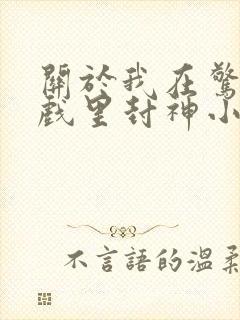 關於我在驚
戲里封神小
不言語的溫柔